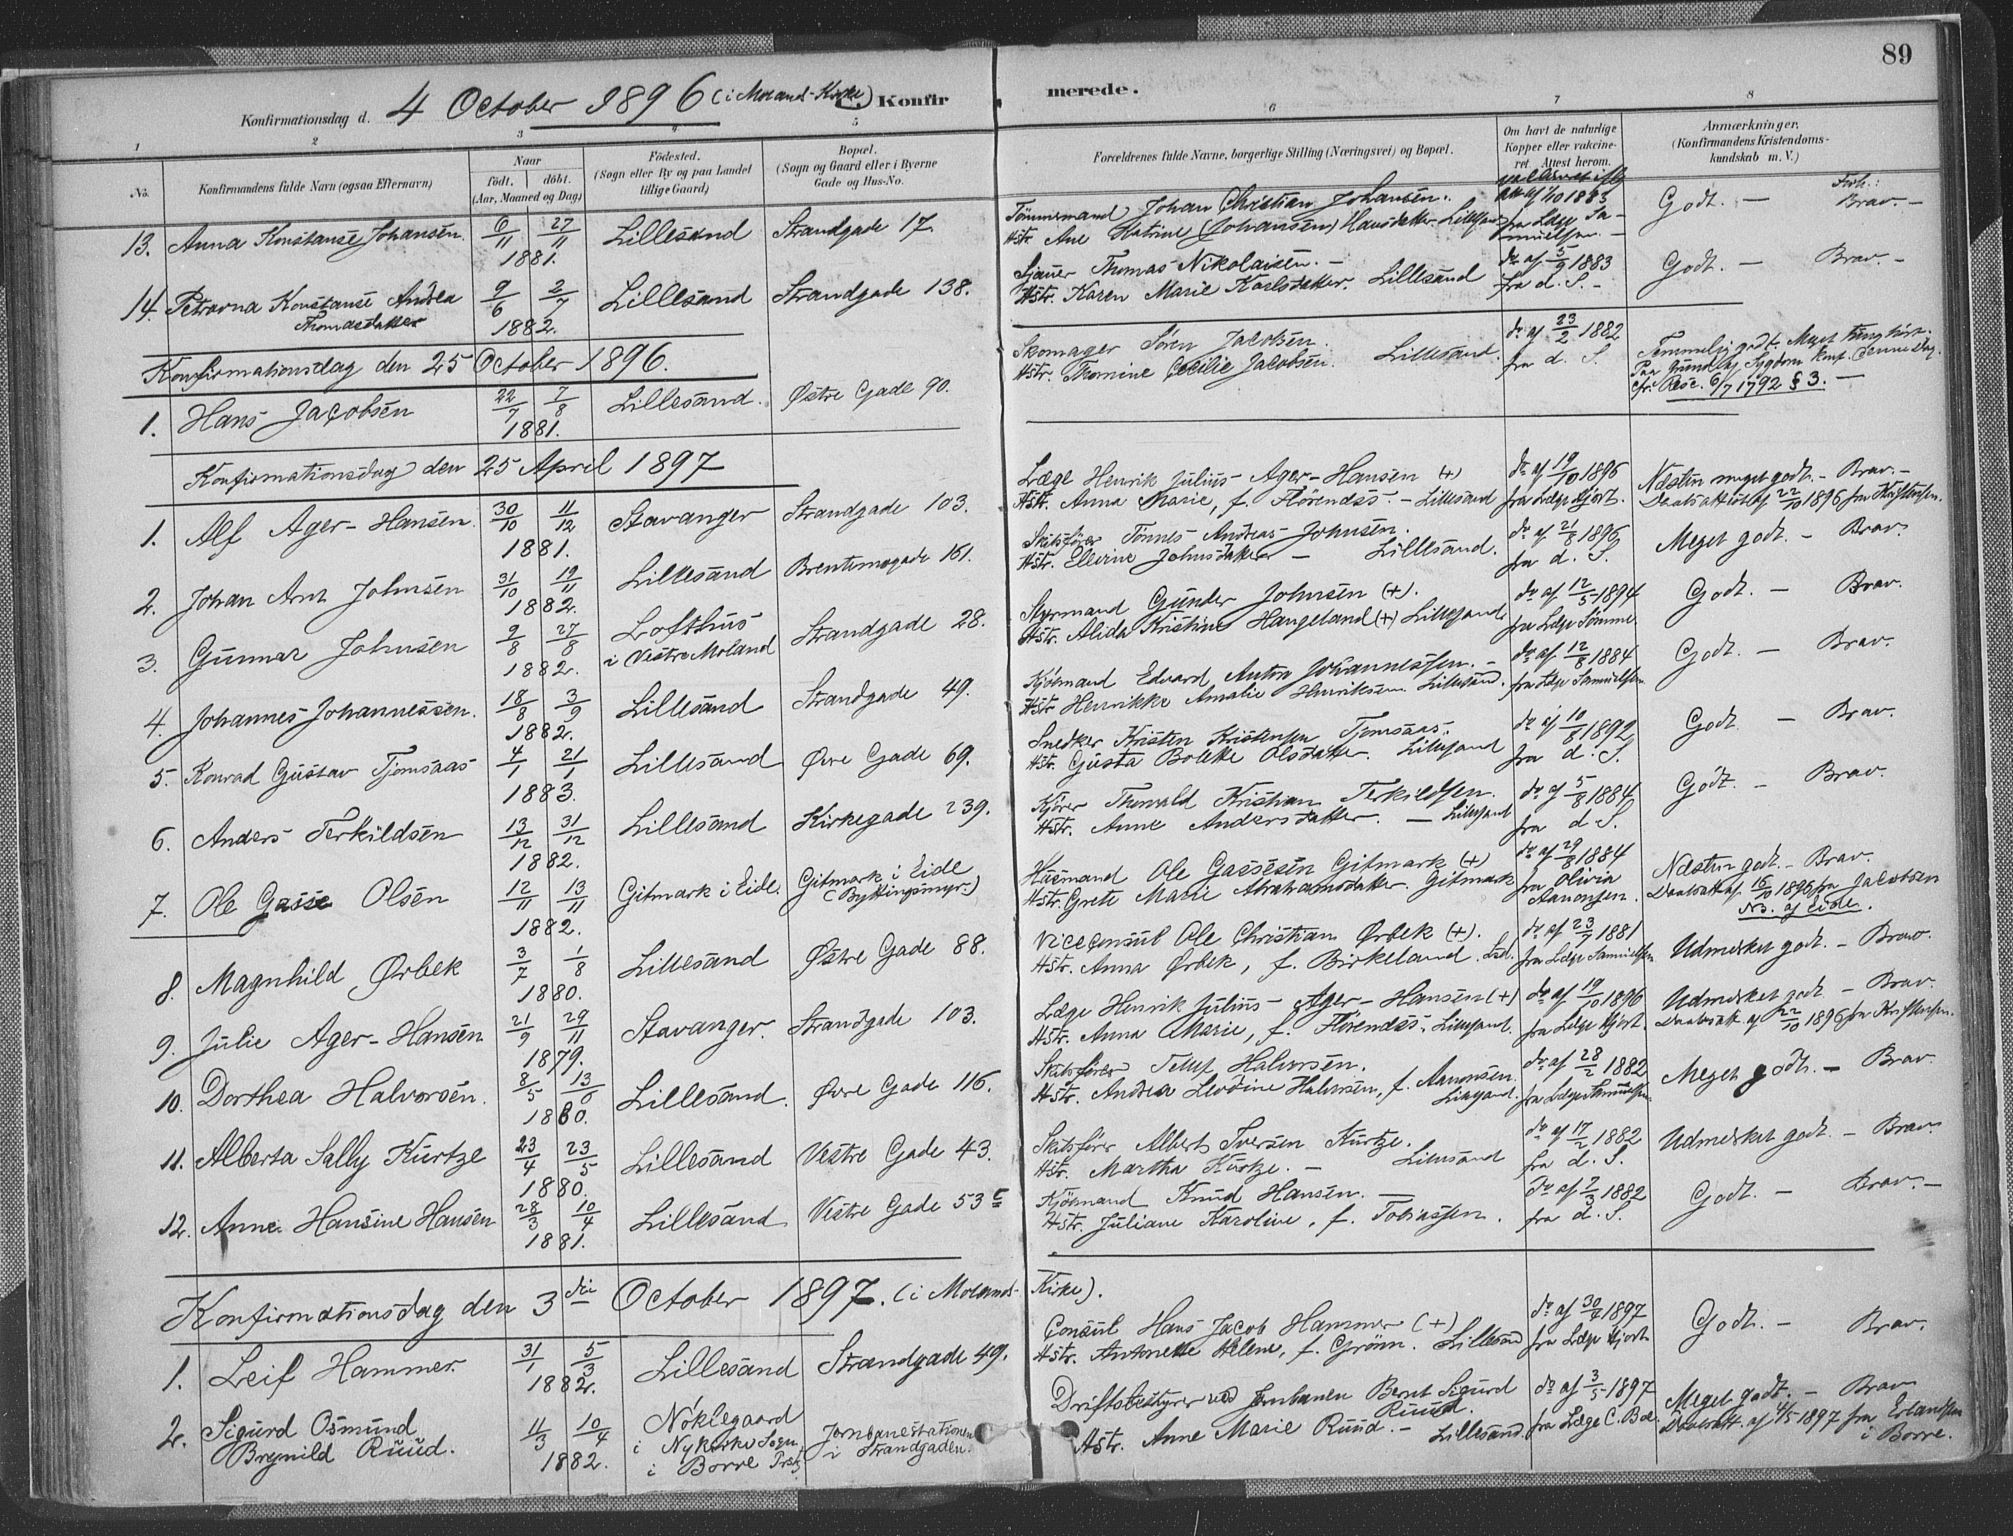 89
Konfirmationsdag d. 4 October 1896 (i Moland-Kirke) C. Konfirmerede.
1 2 3 4 5 6 7 8
No.
Konfirmandens fulde Navn (ogsaa Efternavn)
Naar
født. døbt.
(Aar, Maaned og Dag)
Fødested.
(Sogn eller By og paa Landet
tillige Gaard)
Bopæl.
(Sogn og Gaard eller i Byerne
Gade og Hus-No.
Forældrenes fulde Navne, borgerlige Stilling (Næringsvei) og Bopæl.
Om havt de naturlige
Kopper eller vakcineret.
Attest herom.
Anmærkninger.
(Konfirmandens Kristendomskundskab m. V.)
13. Anna Konstanse Johansen. 6/11 27/11 1881. Lillesand Strandgade 17.
Tømmermand Johan Christian Johansen.
Hstr. Ane Katrine (Johansen) Hansdatter. Lillesand
Godt. — Brav. —
14. Petrovna Konstanse Andrea Thomasdatter 9/6 2/7 1882. Lillesand Strandgade 138.
Sjauer Thomas Nikolaisen. —
Hstr. Karen Marie Karlsdatter. Lillesand
do af 5/9 1883 fra d. S. —
Godt. — Brav. —
Konfirmationsdag den 25 October 1896.
1. Hans Jacobsen 22/7 7/8 1881. Lillesand. Østre Gade 90.
Skomager Søren Jacobsen.
Hstr. Thomine Cecilie Jacobsen. Lillesand.
do af 23/2 1882 fra d. S.
Temmelig godt. Meget tunghørt.
Paa Grund af Sygdom konf. denne Dag.
cfr. Resc. 6/7 1792 § 3. —
Konfirmationsdag den 25 April 1897
1. Alf Ager-Hansen. 30/10 11/12 1881. Stavanger Strandgade 103.
Læge Henrik Julius Ager-Hansen (+)
Hstr. Anna Marie, f. Florendss. — Lillesand
do af 19/10 1896 fra Læge Hjort.
Næsten meget godt. — Brav. —
Daabsattest af 22/10 1896 fra Kristensen.
2. Johan Arnt Johnsen 31/10 19/11 1882. Lillesand Brentemogade 161.
Skibsfører Tønnes Andreas Johnsen.
Hstr. Elevine Johnsdatter — Lillesand.
do af 21/8 1896 fra d. S.
Meget godt. — Brav.
3. Gunnar Johnsen 9/8 27/8 1882. Lofthus i Vestre Moland Strandgade 28.
Styrmand Gunder Johnsen (+).
Hstr. Alida Kristine Haugeland (+) Lillesand
do af 12/5 1894 fra Læge Tømme.
Godt. — Brav.
4. Johannes Johannessen. 18/8 3/9 1882. Lillesand Strandgade 49.
Kjøbmand Edvard Anton Johannessen. —
Hstr. Henrikke Amalie Henriksen. Lillesand.
do af 12/8 1884 fra Læge Samuelsen.
Godt. — Brav.
5. Konrad Gustav Tjomsaas 4/1 21/1 1883. Lillesand Øvre Gade 69.
Snedker Kristen Kristensen Tjomsaas.
Hstr. Gusta Bolette Olsdatter. Lillesand
do af 10/8 1892 fra d. S.
Godt — Brav.
6. Anders Terkildsen 13/12 31/12 1882. Lillesand Kirkegade 239.
Kjører Thorvald Kristian Terkildsen.
Hstr. Anne Andersdatter. — Lillesand
do af 5/8 1884 fra d. S.
Godt. — Brav.
7. Ole Gasse Olsen 12/11 13/11 1882. Gitmark i Eide. Gitmark i Eide (Byttingsmyr.)
Husmand Ole Gassesen Gitmark (+)
Hstr. Grete Marie Abrahamsdatter. Gitmark
do af 29/8 1884 fra Olivia Aanonsen.
Næsten godt. — Brav.
Daabsatt. af 16/10 1896 fra Jacobsen
No. af Eide.
8. Magnhild Ørbek 3/7 1/8 1880. Lillesand Østre Gade 88.
Viceconsul Ole Christian Ørbek (+).
Hstr. Anna Ørbek, f. Birkeland. Lsd.
do af 23/7 1881 fra Læge Samuelsen
Udmerket godt. — Brav.
9. Julie Ager-Hansen 21/9 29/11 1879. Stavanger. Strandgade 103.
Læge Henrik Julius Ager-Hansen (+)
Hstr. Anna Marie, f. Florendss. Lillesand.
do af 19/10 1896 fra Læge Hjort.
Udmerket godt — Brav.
Daabsatt. af 22/10 1896 fra Kristensen.
10. Dorthea Halvorsen. 8/5 13/6 1880. Lillesand. Øvre Gade 116.
Skibsfører Tellef Halvorsen.
Hstr. Andrea Lovine Halvorsen, f. Aanonsen. Lillesand.
do af 28/2 1882 fra Læge Samuelsen.
Meget godt. — Brav.
11. Alberta Sally Kurtze 23/4 23/5 1880. Lillesand Vestre Gade 43.
Skibsfører Albert Iversen Kurtze.
Hstr. Martha Kurtze. — Lillesand
do af 17/2 1882 fra d. S.
Udmerket godt. — Brav.
12. Anne Hansine Hansen 28/3 10/4 1881. Lillesand Vestre Gade 53 c
Kjøbmand Knud Hansen. —
Hstr. Juliane Karoline, f. Tobiassen.
do af 2/3 1882 fra d. S.
Godt. — Brav. —
Konfirmationsdag den 3die October 1897. (i Molands-Kirke).
1. Leif Hammer. 31/1 5/3 1882. Lillesand Strandgade 49.
Consul Hans Jacob Hammer (+)
Hstr. Antonette Helene, f. Grönn. Lillesand
do af 30/9 1897 fra Læge Hjort
Godt. — Brav.
2. Sigurd Osmund Brynild Ruud. 11/3 10/4 1882. Noklegaard i Nykirke Sogn i Borre Prstg. Jernbanestationen i Strandgaden.
Driftsbestyrer ved Jernbanen Bernt Sigurd Ruud.
Hstr. Anne Marie Ruud. — Lillesand.
do af 3/5 1897 fra Læge C. Boe.
Meget godt. — Brav
Daabsatt. af 4/5 1897 fra Erlandsen
i Borre.